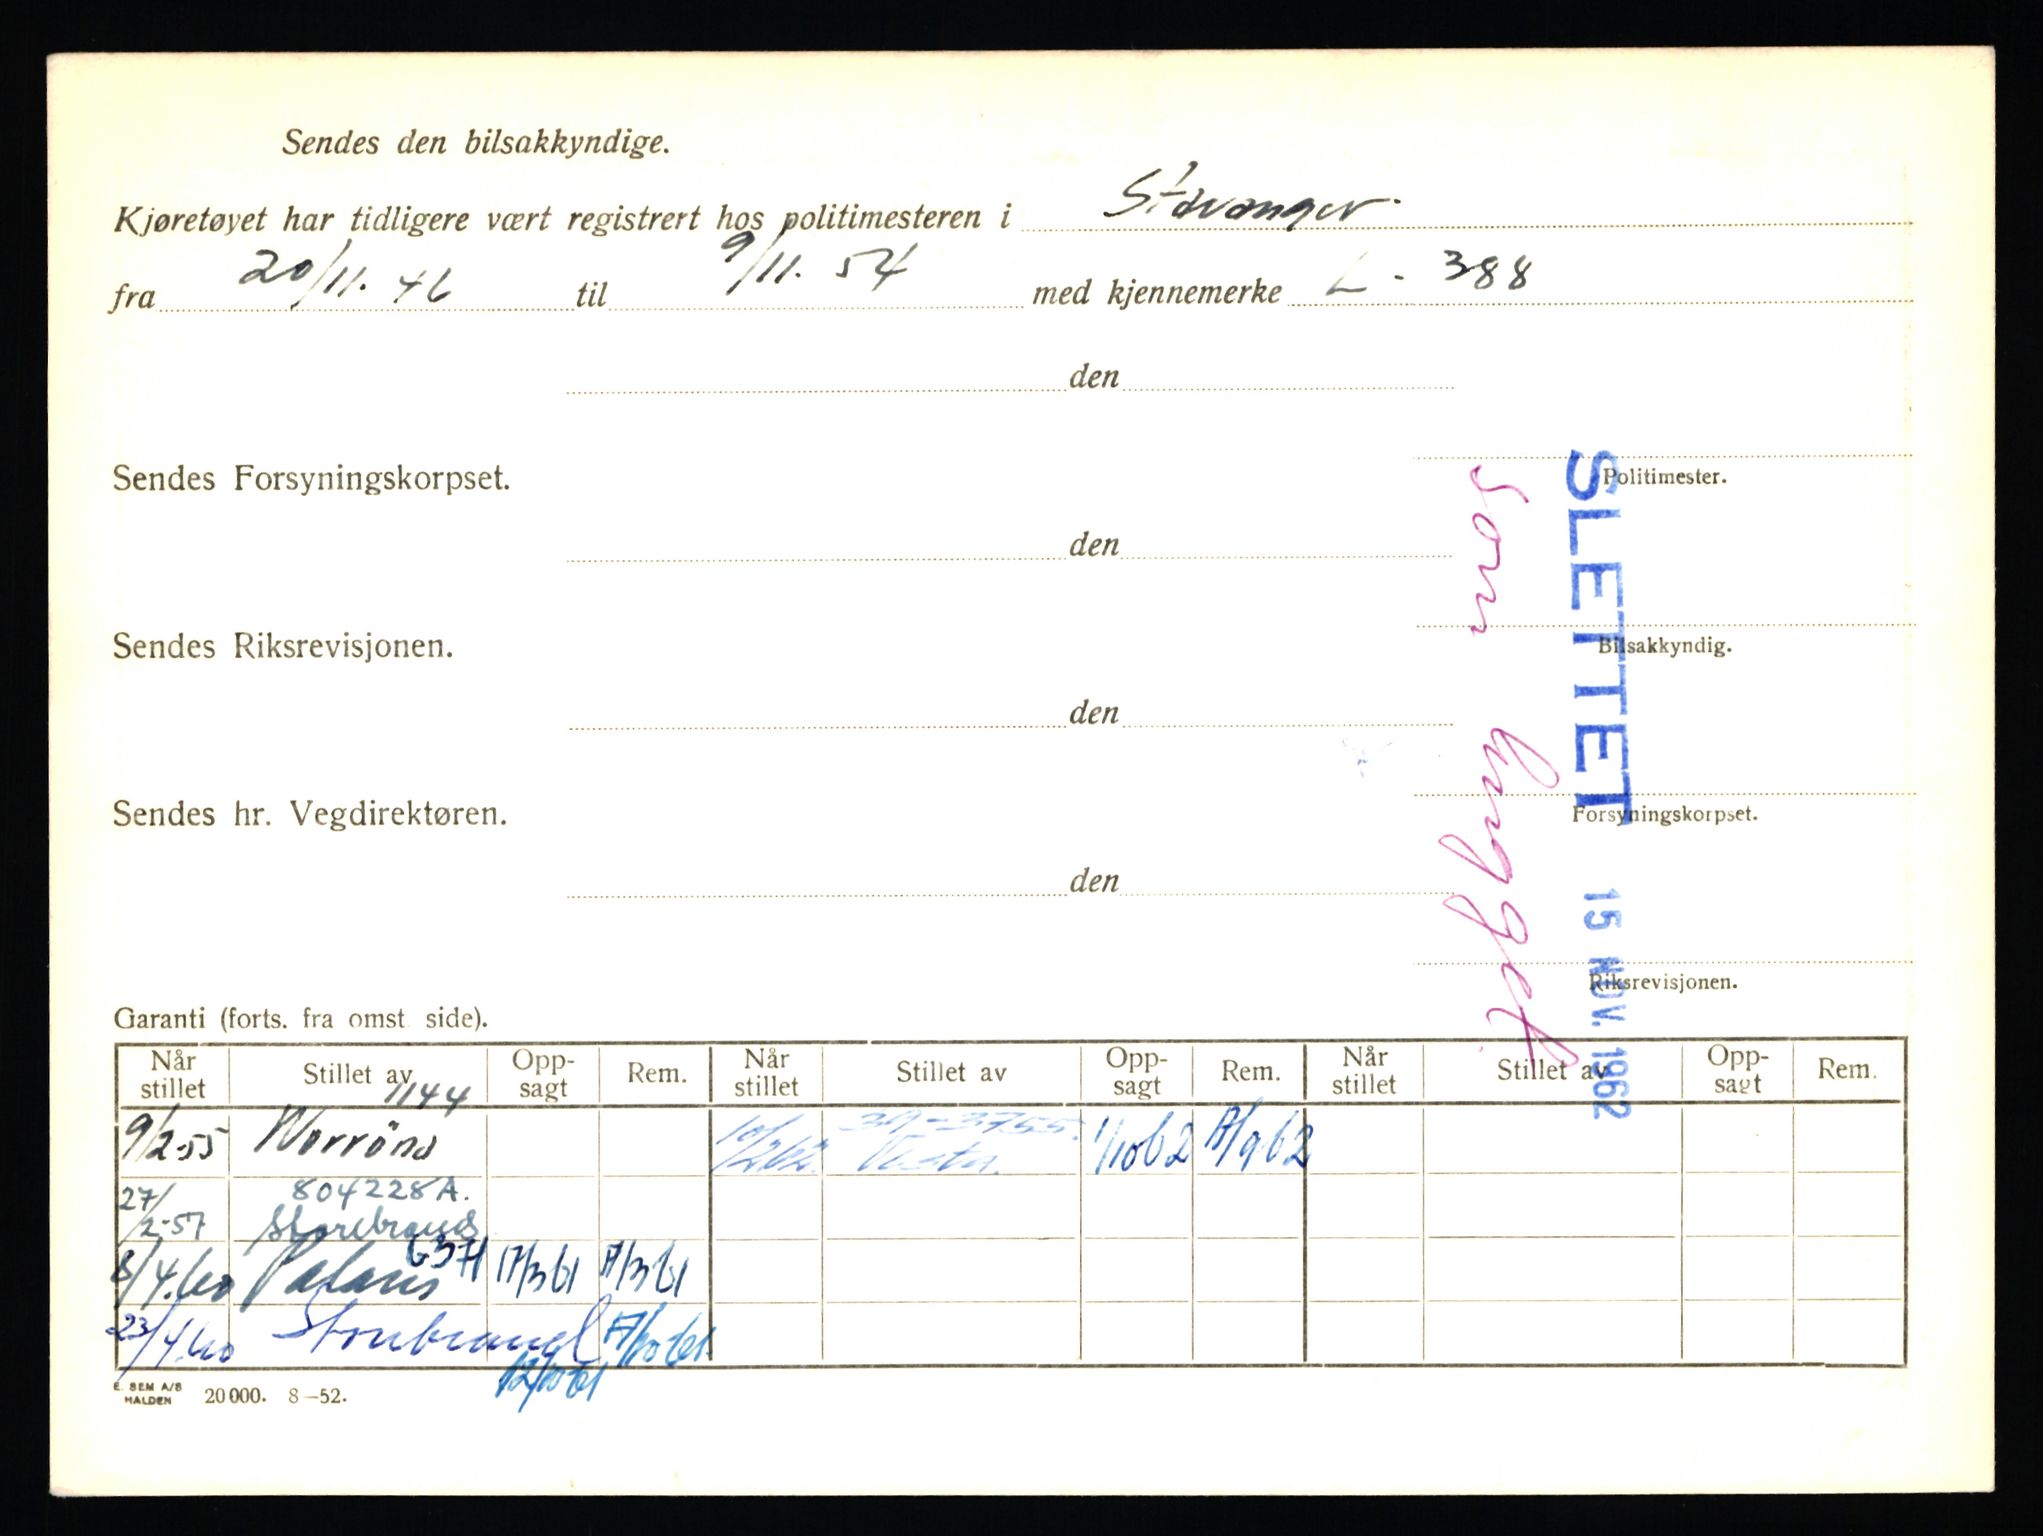 Sendes den bilsakkyndige.
Kjøretøyet har tidligere vært registrert hos politimesteren i Stavanger.
fra 20/11. 46 til 9/11. 54 med kjennemerke L - 388
den
Politimester.
Sendes Forsyningskorpset.
den
Bilsakkyndig.
Sendes Riksrevisjonen.
den
Forsyningskorpset.
Sendes hr. Vegdirektøren.
den
Riksrevisjonen.
Som hugget
SLETTET 15 NOV. 1962
Garanti (forts. fra omst side).
Når stillet Stillet av Opp-sagt Rem. Når stillet Stillet av Opp-sagt Rem. Når stillet Stillet av Opp-sagt Rem.
1144
9/2-55 Norrøna 10/262. 39-3755. Vesta. 1/1062
27/2-57 804228A. Storebrand
8/4.60 Polaris 17/361
23/4.60 Storebrand
12/1061
E. SEM A/S
HALDEN 20000. 8-52.